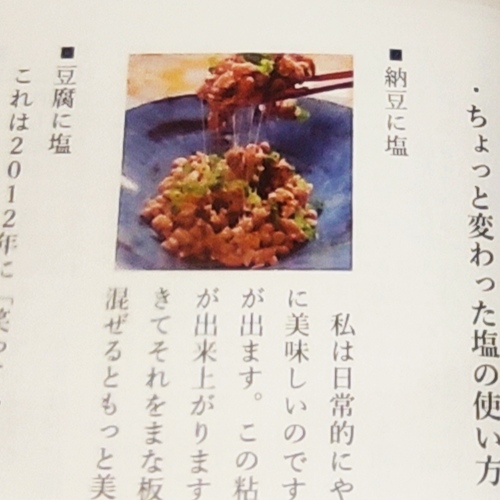 ・ちょっと変わった塩の使い方
■納豆に塩
私は日常的にや
に美味しいのです
が出ます。この粘
が出来上がります
きてそれをまな板
混ぜるともっと美
■豆腐に塩
これは2012年に「笑っ